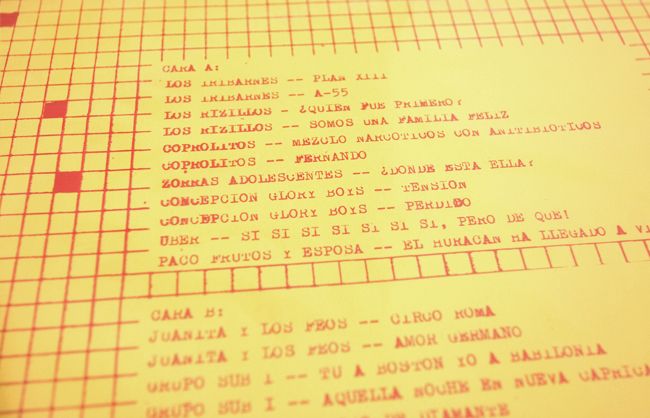 CARA A:
LOS IRIBARNES -- PLAN XIII
LOS IRIBARNES -- A-55
LOS RIZILLOS - ¿QUIEN FUE PRIMERO?
LOS RIZILLOS -- SOMOS UNA FAMILIA FELIZ
COPROLITOS -- MEZCLO NARCOTICOS CON ANITIBIOTICOS
COPROLITOS -- FERNANDO
ZORRAS ADOLESCENTES -- ¿DONDE ESTA ELLA?
CONCEPCION GLORY BOYS -- TENSION
CONCEPCION GLORY BOYS -- PERDIDO
UBER -- SI SI SI SI SI SI SI, PERO DE QUE!
PACO FRUTOS Y ESPOSA -- EL HURACAN HA LLEGADO A
CARA B:
JUANITA Y LOS FEOS -- CIRCO ROMA
JUANITA Y LOS FEOS -- AMOR GERMANO
GRUPO SUB I -- TU A BOSTON YO A BABILONIA
GRUPO SUB I -- AQUELLA NOCHE EN NUEVA
DIAMANTE